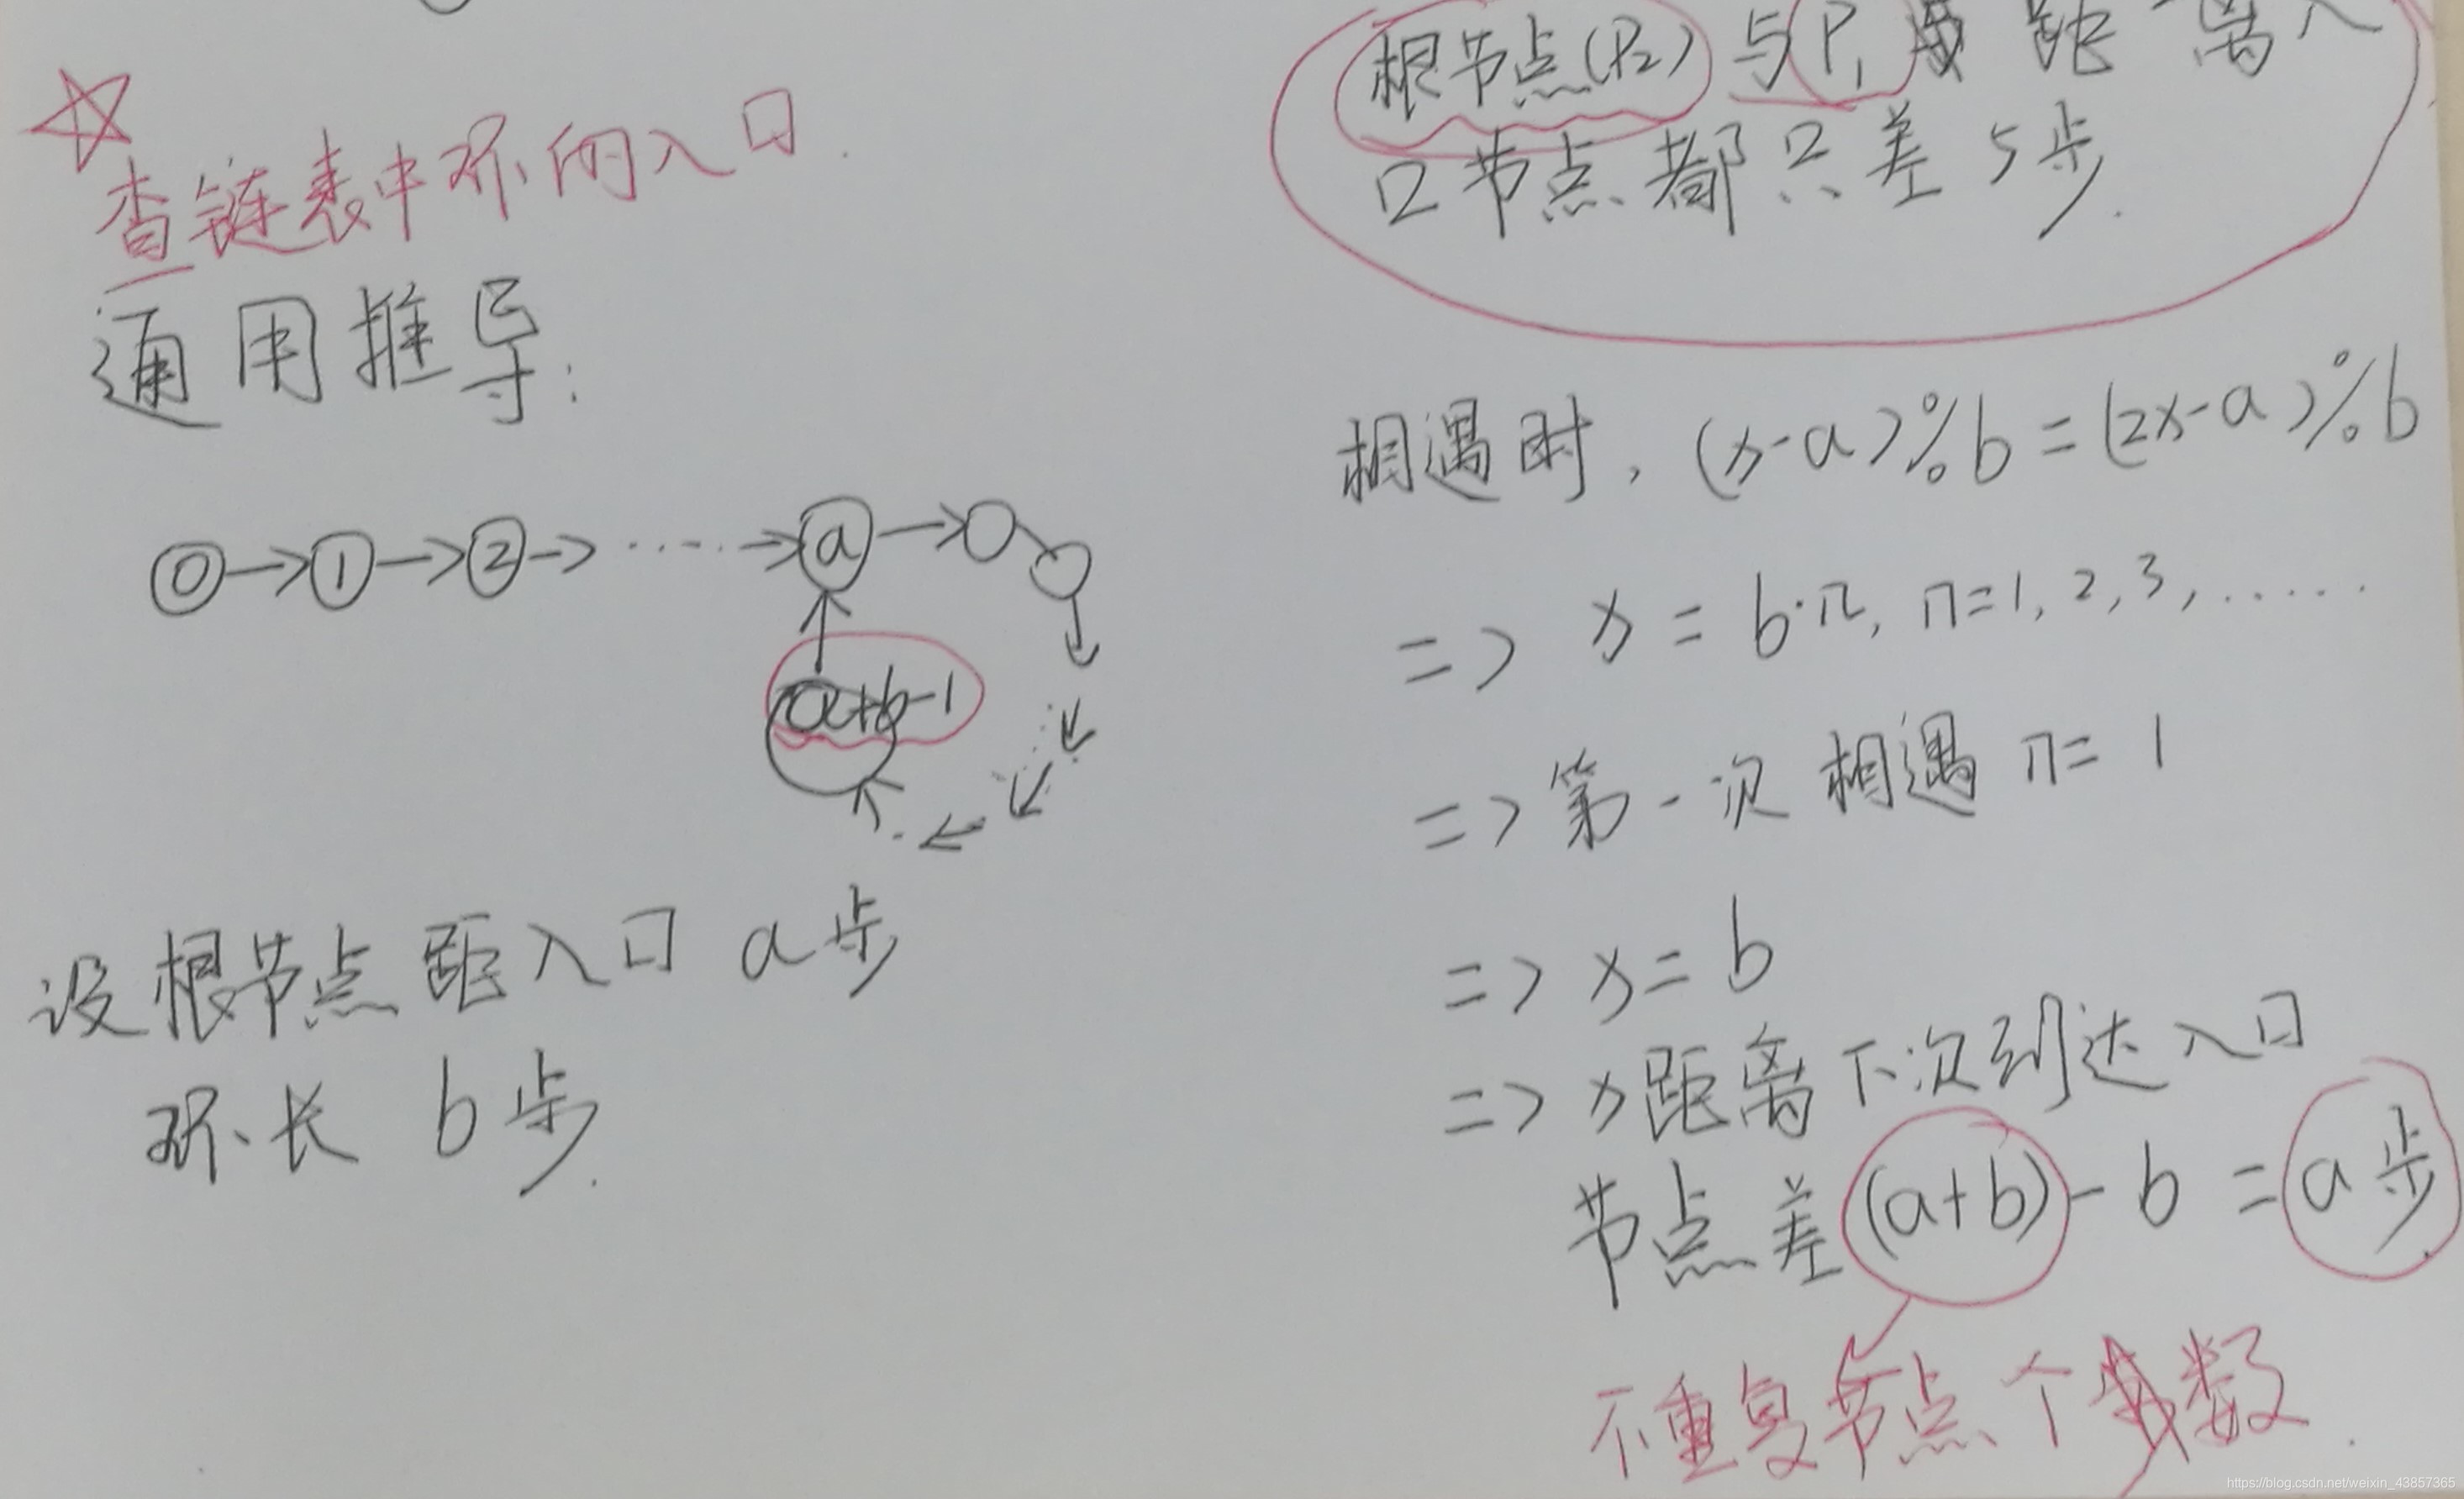 查链表中环的入口.
通用推导:
0 → 1 → 2 → ····· → a →
a+b-1
设根节点距入口 a步
环长 b步.
根节点(P2) 与P1 距离入
口节点都只差5步.
相遇时, (x-a)%b=(2x-a)%b
=> x = b·n, n=1, 2, 3, ······
=> 第一次相遇 n=1
=> x=b
=> x距离下次到达入口
节点差(a+b)-b=a步.
不重复节点个数.
https://blog.csdn.net/weixin_43857365